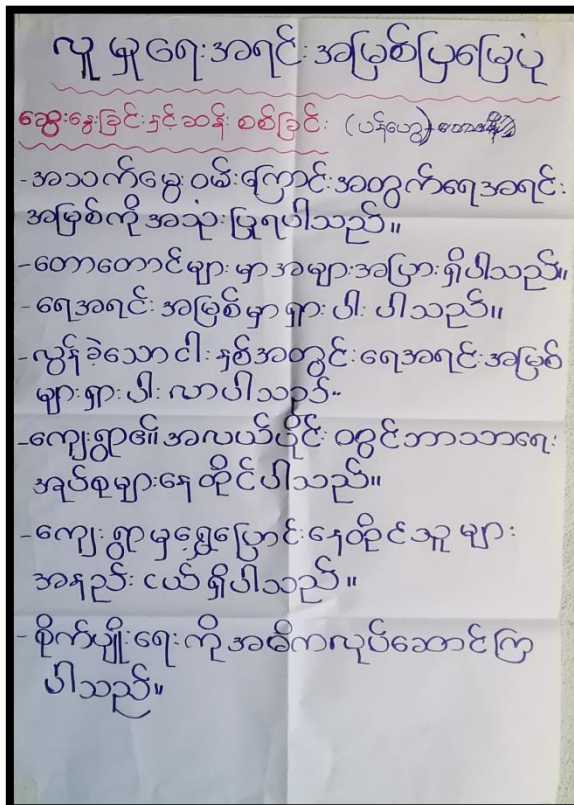 လူမှုရေးအရင်းအမြစ်ပြမြေပုံ
ဆွေးနွေးခြင်းနှင့်ဆန်းစစ်ခြင်း (ပန်ဟွေ)
-အသက်မွေးဝမ်းကြောင်းအတွက်ရေအရင်း
အမြစ်ကိုအသုံးပြုရပါသည်။
-တောတောင်များမှာအများအပြားရှိပါသည်။
-ရေအရင်းအမြစ်မှာရှားပါးပါသည်။
-လွန်ခဲ့သောငါးနှစ်အတွင်းရေအရင်းအမြစ်
များရှားပါးလာပါသည်။
-ကျေးရွာ၏အလယ်ပိုင်းဝတွင်ဘာသာရေး
အုပ်စုများနေထိုင်ပါသည်။
-ကျေးရွာမှရွှေ့ပြောင်းနေထိုင်သူများ
အနည်းငယ်ရှိပါသည်။
-စိုက်ပျိုးရေးကိုအဓိကလုပ်ဆောင်ကြ
ပါသည်။